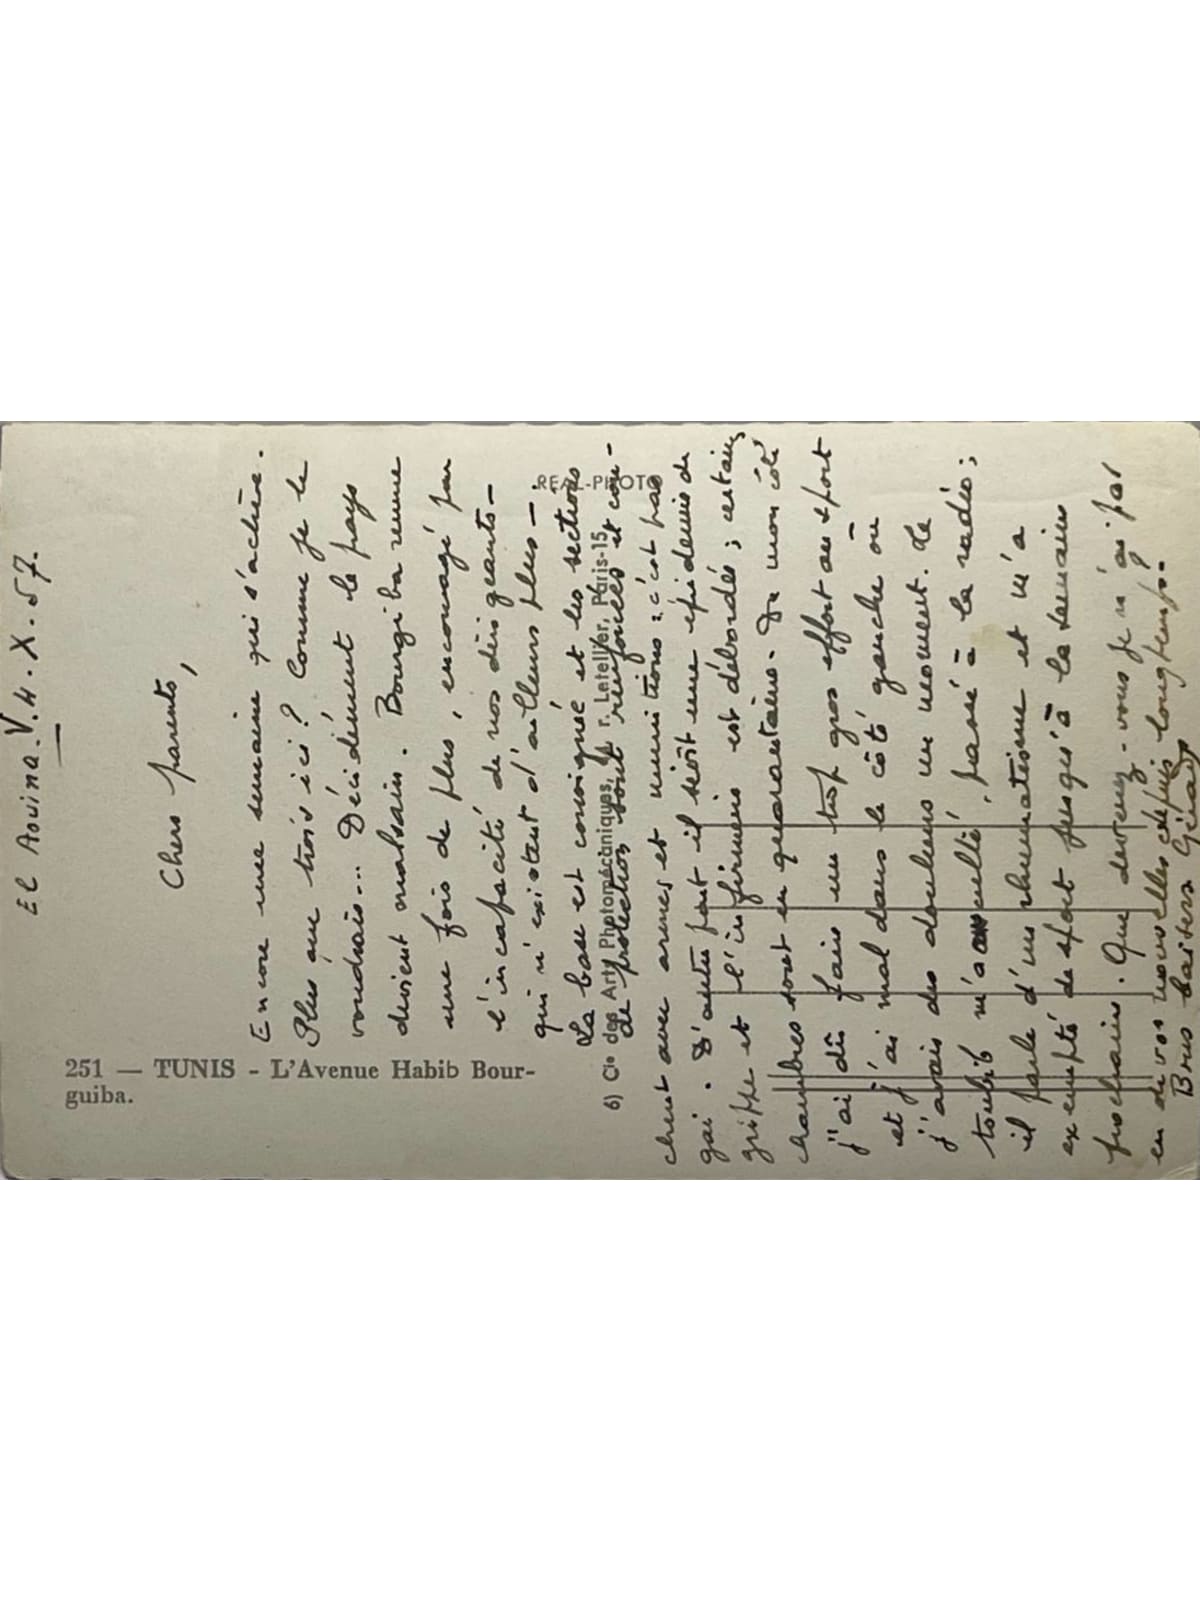 El Aouina. V. 4. X. 57.
Chers parents,
Encore une semaine qui s'achève.
Plus que trois ici ? Comme je le
voudrais... Décidément le pays
devient malsain. Bourgiba remue
une fois de plus, encouragé par
l'incapacité de nos dirigeants —
qui n'existent d'ailleurs plus —.
La base est consignée et les sections
de protection sont renforcées et cou-
chent avec armes et munitions : c'est pas
gai. D'autre part il sévit une épidémie de
grippe et l'infirmerie est débordée ; certaines
chambres sont en quarantaine. De mon côté
j'ai dû faire un trop gros effort au sport
et j'ai mal dans le côté gauche où
j'avais des douleurs un moment. Le
toubib m'a passé à la radio ;
il parle d'un rhumatisme et m'a
exempté de sport jusqu'à la semaine
prochaine. Que devenez-vous ? Je n'ai pas
eu de vos nouvelles depuis longtemps.
Bons baisers Gérard
251 — TUNIS - L'Avenue Habib Bour-
guiba.
REAL-PHOTO
6) Cie des Arts Photomécaniques, r. Latellier, Paris-15